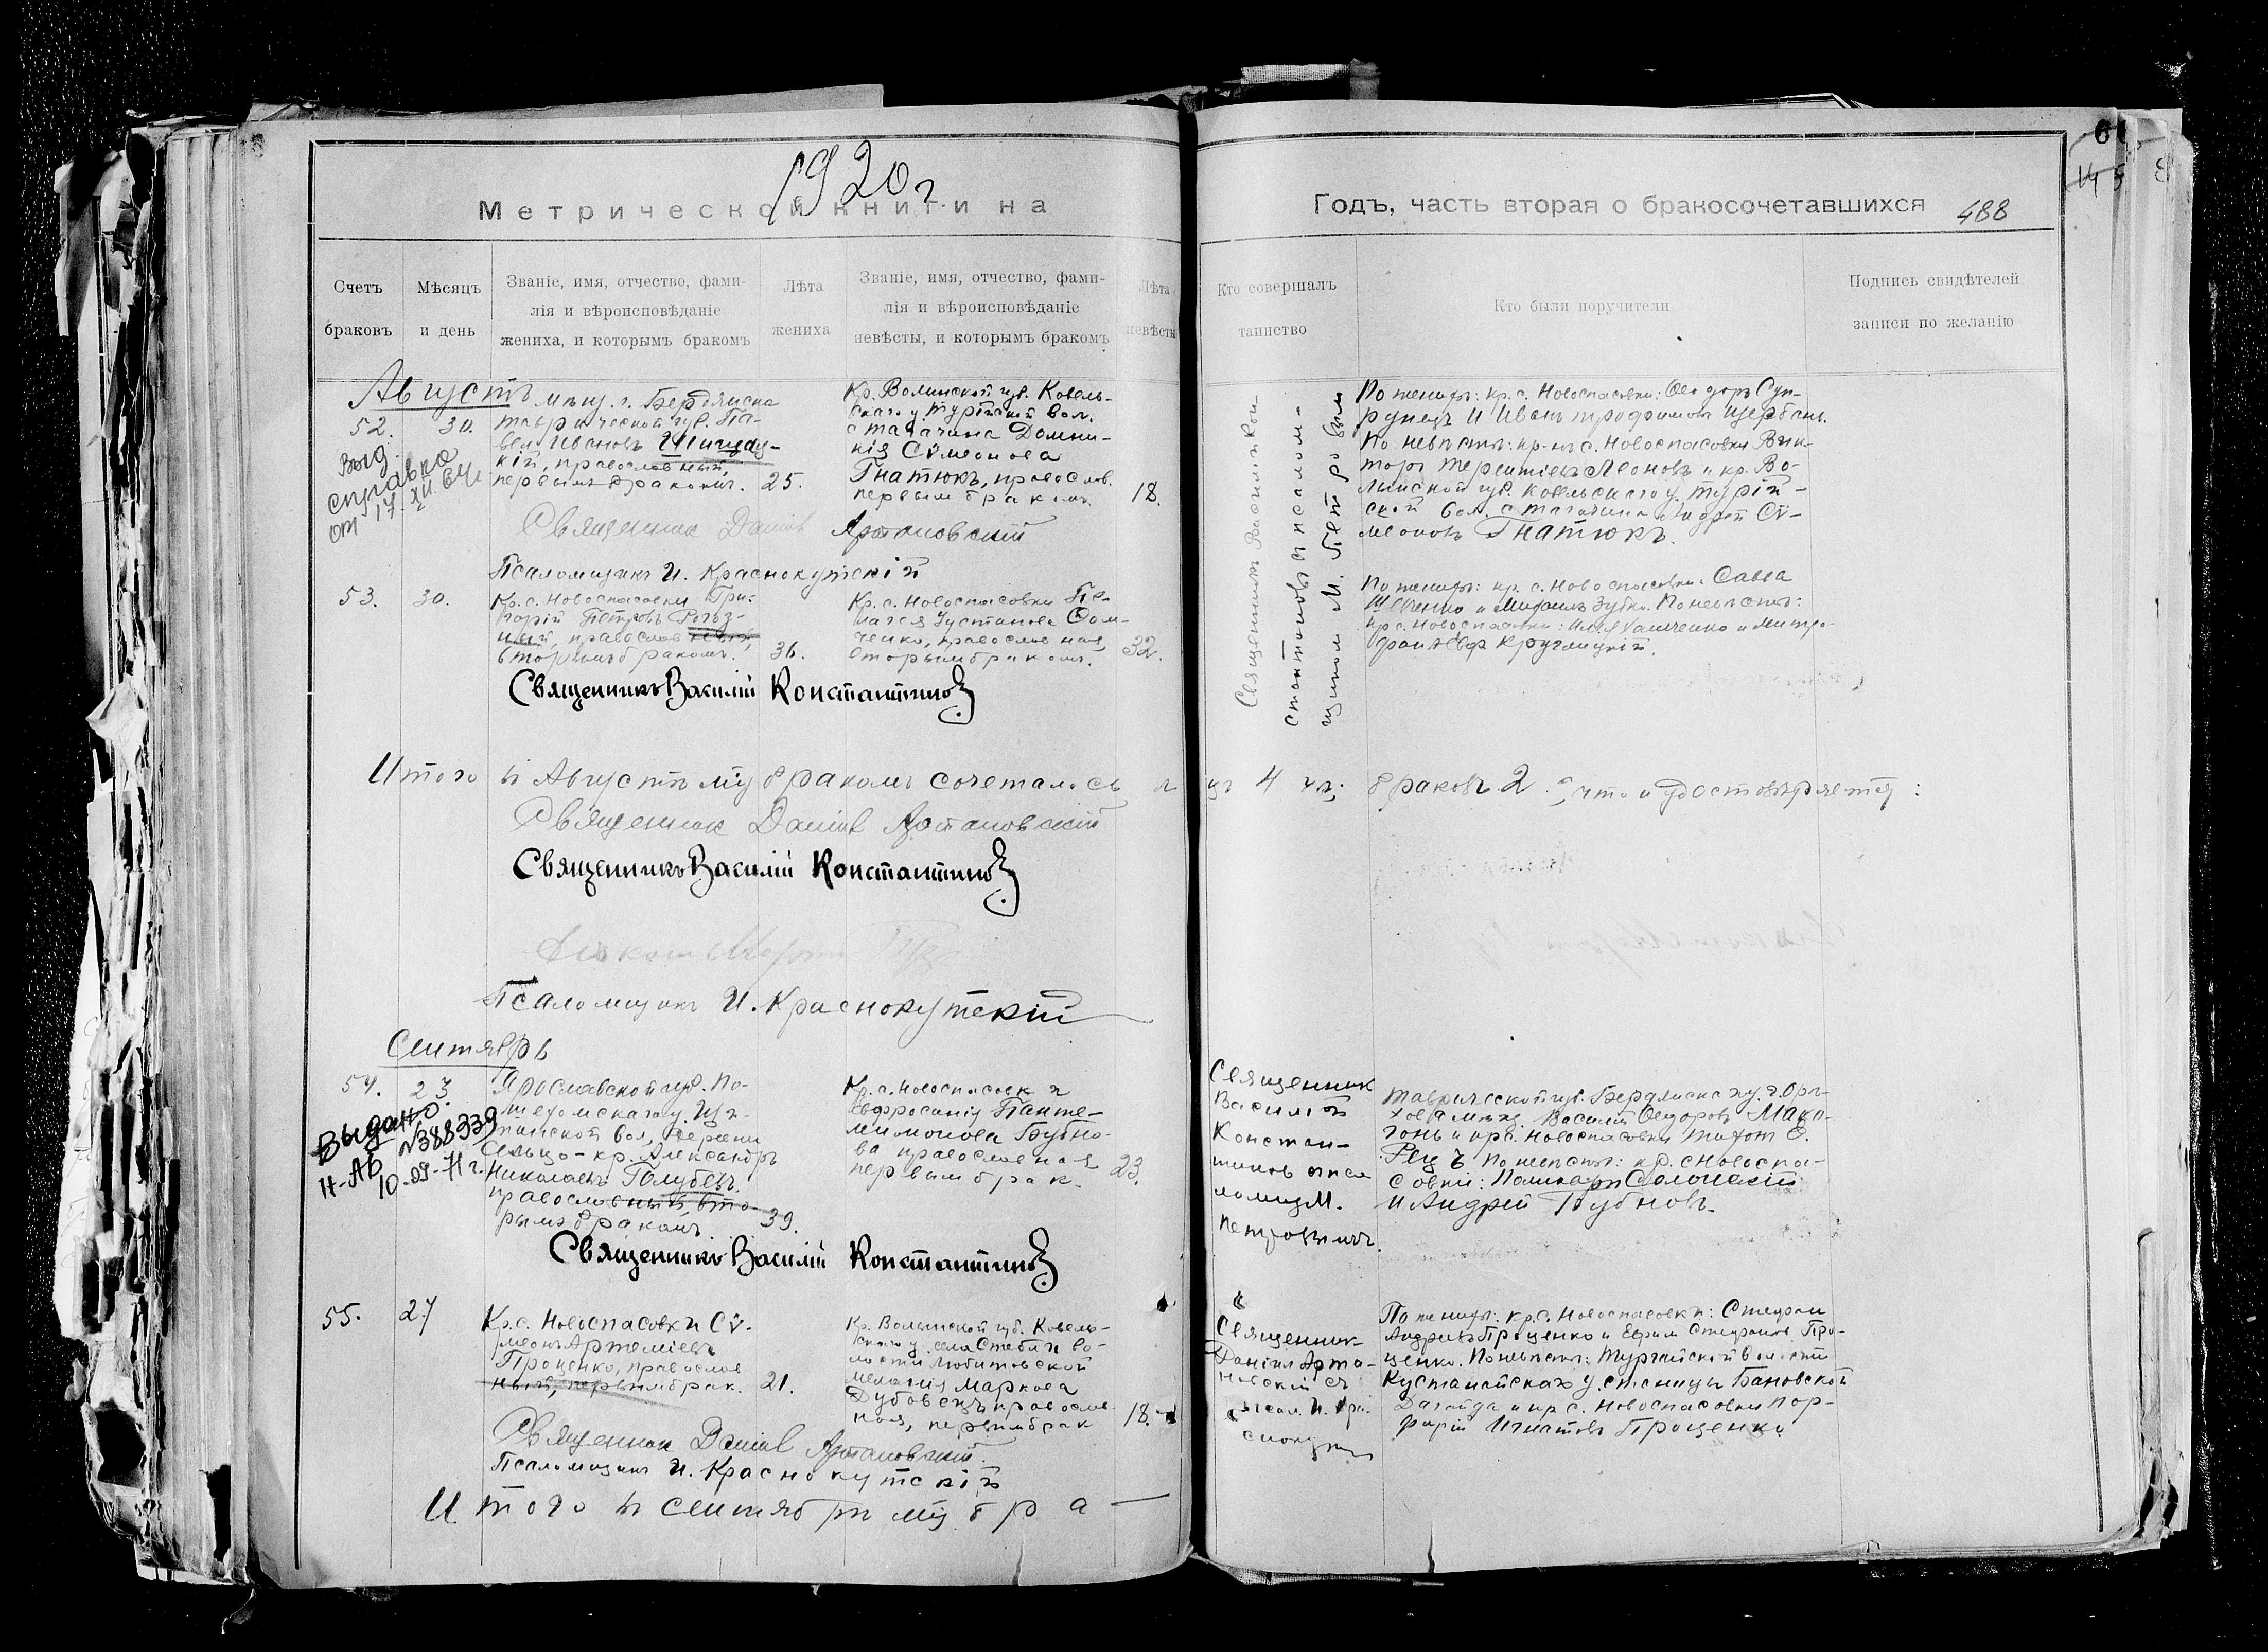 1920 г.
Метрической книги на
Годъ, часть вторая о бракосочетавшихся
488
Счетъ браковъ
Мѣсяцъ и день
Званіе, имя, отчество, фами-
лія и вѣроисповѣданіе
жениха, и которымъ бракомъ
Лѣта жениха
Званіе, имя, отчество, фами-
лія и вѣроисповѣданіе
невѣсты, и которымъ бракомъ
Лѣта невѣсты
Кто совершалъ
таинство
Кто были поручители
Подпись свидѣтелей
записи по желанію
Августъ
52.
30.
Выд.
справка
от 17.XII.64
г. Бердянска
Таврической губ. Па-
велъ Ивановъ
кій, православный,
первымъ бракомъ.
25.
Кр. Волынской губ. Ковель-
скаго у. Турійской вол.
Домни-
кія Сѵмеонова
Гнатюкъ, православ.
первымъ бракомъ
18.
Священникъ Василій Кон-
стантиновъ и псалом-
щикомъ М. Петровым
По женихѣ: кр. с. Новоспасовки: Ѳеодоръ Суп-
рунецъ и Иванъ Трофимовъ Щербань.
По невѣстѣ: кр-нъ с. Новоспасовки Вик-
торъ Терентіевъ Леоновъ и кр. Во-
лынской губ. Ковельскаго у. Турій-
ской вол. Андрей Сѵ-
меоновъ Гнатюкъ.
Священник Даніил Артановскій
Псаломщикъ И. Краснокутскій
53.
30.
Кр. с. Новоспасовки Гри-
горій Петровъ Рогоз-
ный, православ
вторымъ бракомъ.
36.
Кр. с. Новоспасовки Пе-
лагея Іустинова Ѳом-
ченко, православная,
вторымъ бракомъ.
32.
По женихѣ: кр. с. Новоспасовки: Савва
Шевченко и Михаилъ Зубко. По невѣстѣ:
кр. с. Новоспасовки: Илья Хамченко и Митро-
фанъ Круглицкій.
Священникъ Василій Константинов
Итого въ Августѣ м-цѣ бракомъ сочеталось 4 браковъ 2, что и удостовѣряется:
Священник Даніил Артановскій
Священникъ Василій Константинов
Псаломщикъ И. Краснокутскій
Сентябрь
54.
23.
Выдано
№388339
II-АБ
10-09-71 г.
Ярославской губ. По-
шехонскаго у.
вол., деревни
Сельцо - кр. Александръ
Николаевъ Голубевъ,
православный, вто-
рымъ бракомъ.
39.
Кр. с. Новоспасовки
Евфросинія Панте-
леимонова Бубно-
ва православная
первым брак.
23.
Священник
Василій
Констан-
тинов и пса
ломщ М.
Петровичъ.
Таврической губ. Бердянскаго у. г. Орѣ-
хова мѣщ. Василій Ѳедоровъ Мако-
гонъ и кр. с. Новоспасовки
По невѣстѣ: кр. с. Новоспа-
совки: Поликарпъ
и Андрей Бубновъ.
Священникъ Василій Константинов
55.
27
Кр. с. Новоспасовки Сѵ-
меонъ Артеміевъ
Проценко, православ
ный, первым брак.
21.
Кр. Волынской губ. Ковель-
скаго у. села Стебли во-
лости Любитовской
Меланія Маркова
Дубовецъ православ
ная, первым брак
18.
Священник
Даніил Арта-
новскій съ
псал. И. Кра-
снокут
По женихѣ: кр. с. Новоспасовки: Стефан
Андреевъ Проценко и Ефрем Стефановъ Про-
ценко. По невѣстѣ: Тургайской области
Кустанайскаго у. станицы Бановской
и кр. с. Новоспасовки Пор-
фирій Игнатовъ Проценко.
Священник Даніил Артановскій.
Псаломщикъ И. Краснокутскій
Итого въ Сентябрѣ м-цѣ бра-